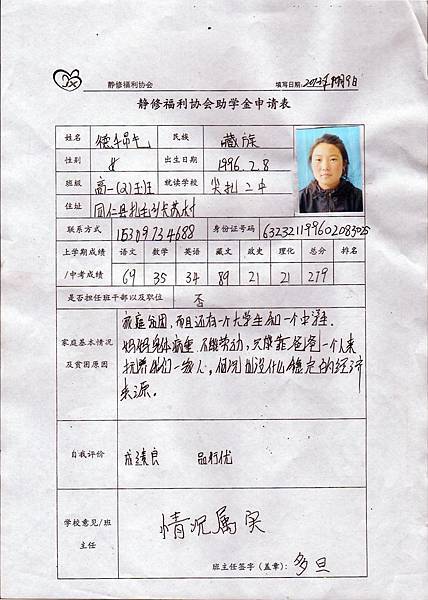 静修福利协会 填写日期:2012年10月9日
静修福利协会助学金申请表
姓名 德吉吊毛 民族 藏族
性别 女 出生日期 1996.2.8
班级 高一(2)班 就读学校 尖扎二中
住址 同仁县扎毛乡
联系方式 15309734688 身份证号码 632321199602083025
上学期成绩 语文 数学 英语 藏文 政史 理化 总分 排名
/中考成绩 69 35 34 89 21 21 279
是否担任班干部以及职位 否
家庭贫困,而且还有一个大学生和一个中学生.
家庭基本情况 妈妈身体病重 不能劳动,只像靠爸爸一个人来
及贫困原因 抚养我们一家人,但况且没什么稳定的经济
来源.
自我评价 成绩良 品行优
学校意见/班主任 情况属实
班主任签字(盖章): 多旦